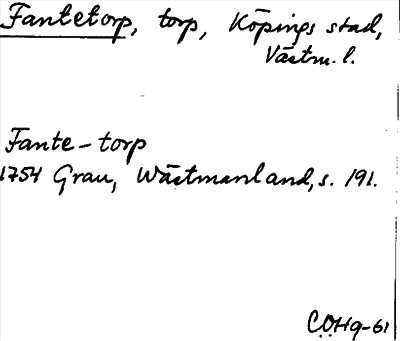 Fantetorp, torp, Köpings stad,
Västm. l.
Fante-torp
1754 Grau, Wästmanland, s. 191.
COH9-61